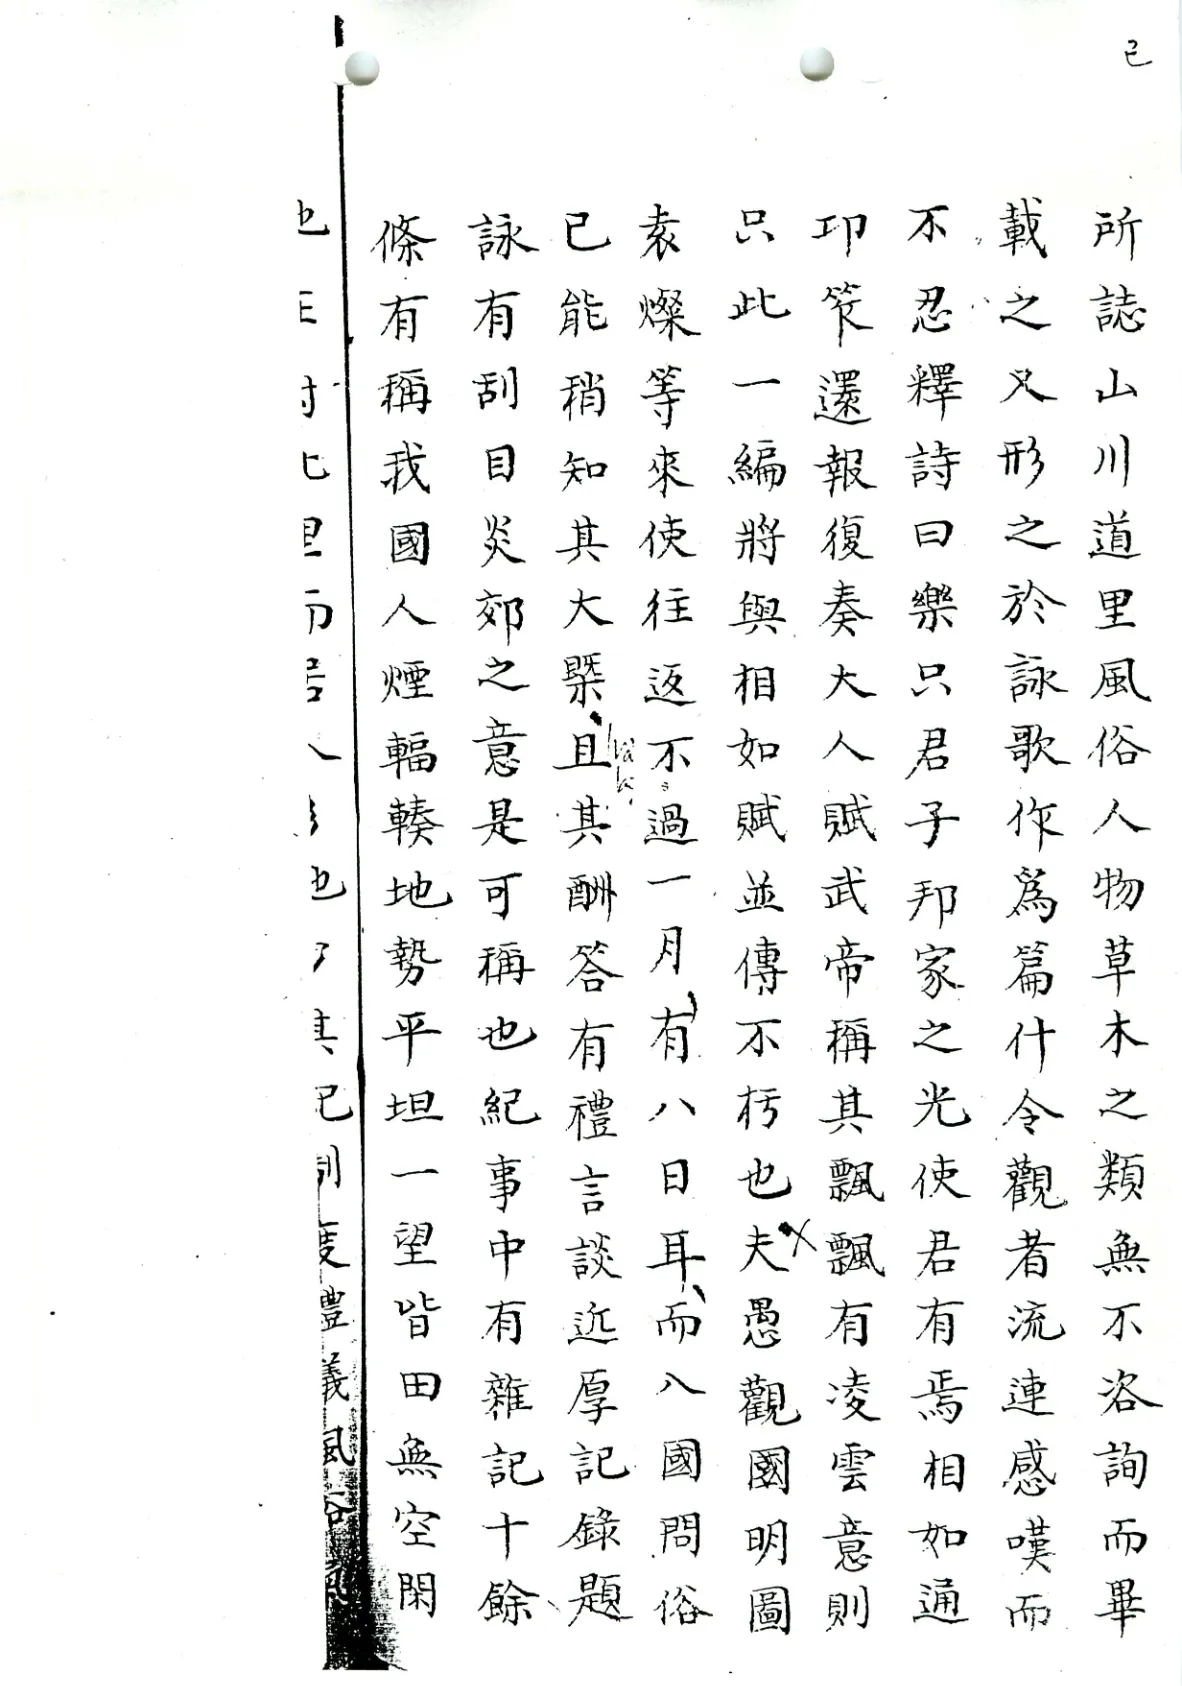 己
所誌山川道里風俗人物草木之類無不咨詢而畢
載之又形之於詠歌作爲篇什令觀者流連感嘆而
不忍釋詩曰樂只君子邦家之光使君有焉相如通
卭筰還報復奏大人賦武帝稱其飄飄有凌雲意則
只此一編將與相如賦並傳不朽也夫愚觀國明圖
袁燦等來使往返不過一月有八日耳而入國問俗
已能稍知其大槩且其酬答有禮言談近厚記錄題
詠有刮目炎郊之意是可稱也紀事中有雜記十餘
條有稱我國人煙輻輳地勢平坦一望皆田無空閑
也 里而居人 也 其 制度禮義風俗